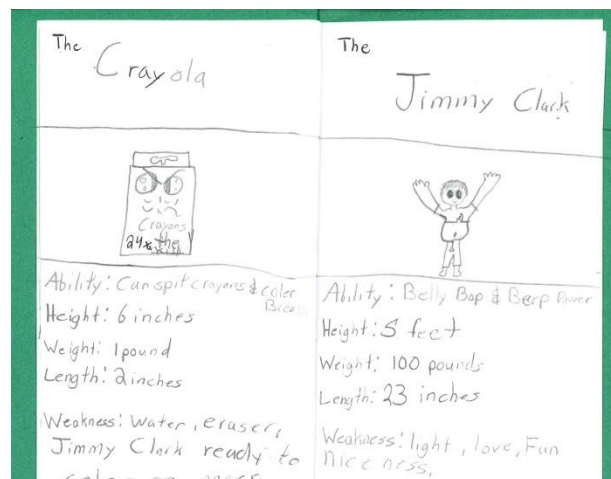 The
Crayola
Crayons
24
Ability: Can spit crayons & coler
Height: 6 inches
Weight: 1 pound
Length: 2 inches
Weakness: Water, eraser,
Jimmy Clark ready to
The
Jimmy Clark
Ability: Belly Bop & Berp Power
Height: 5 feet
Weight: 100 pounds
Length: 23 inches
Weakness: light, love, Fun
nice ness,